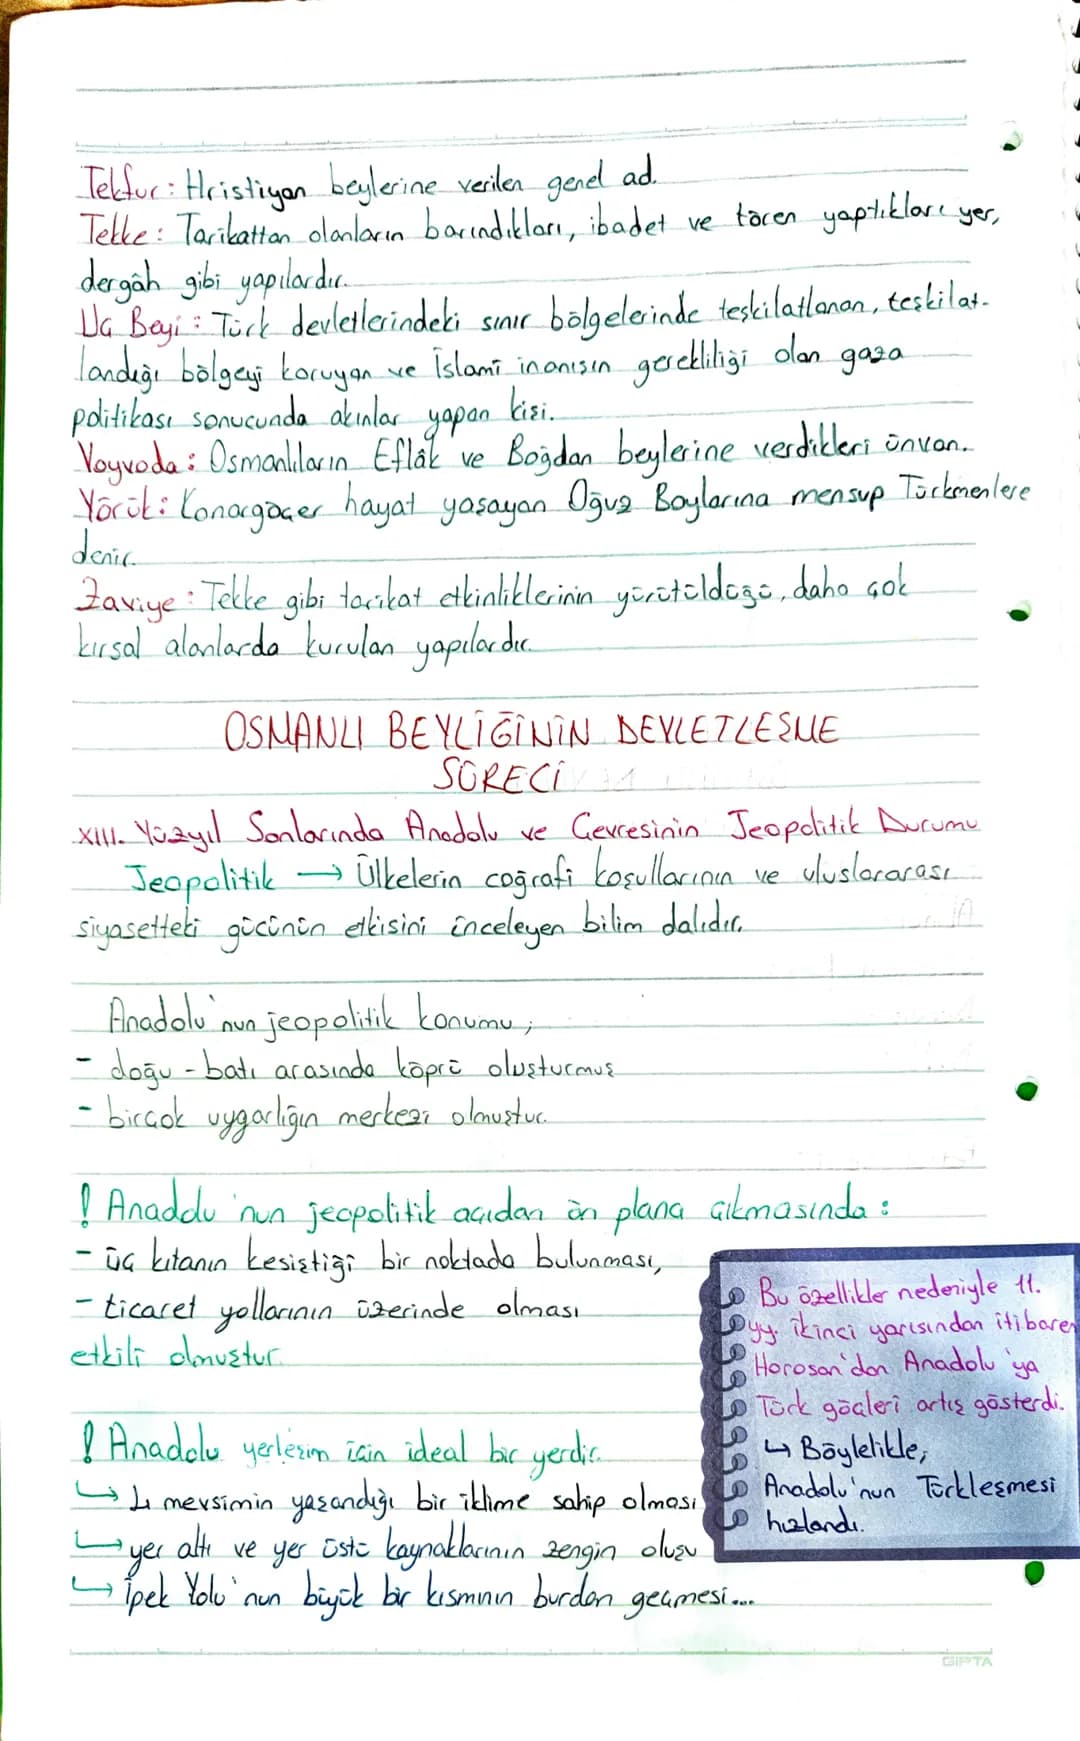 Tekfur: Hristiyan beylerine verilen genel ad.
Tekke: Tarikattan olanların barındıkları, ibadet ve tören yaptıkları yer,
dergâh gibi yapılardır.
Uç Beyi: Türk devletlerindeki sınır bölgelerinde teşkilatlanan, teşkilat-
landığı bölgeyi koruyan ve İslamî inanışın gerekliliği olan gaza
politikası sonucunda akınlar yapan kişi.
Voyvoda: Osmanlıların Eflâk ve Boğdan beylerine verdikleri ünvan.
Yörük: Konargöçer hayat yaşayan Oğuz Boylarına mensup Türkmenlere
denir.
Zaviye: Tekke gibi tarikat etkinliklerinin yürütüldüğü, daha çok
kırsal alanlarda kurulan yapılardır.
OSMANLI BEYLİĞİNİN DEVLETLEŞME
SÜRECİ
XIII. Yüzyıl Sonlarında Anadolu ve Çevresinin Jeopolitik Durumu
Jeopolitik → Ülkelerin coğrafi koşullarının ve uluslararası
siyasetteki gücünün etkisini inceleyen bilim dalıdır.
Anadolu'nun jeopolitik konumu;
- doğu - batı arasında köprü oluşturmuş
- birçok uygarlığın merkezi olmuştur.
! Anadolu'nun jeopolitik açıdan ön plana çıkmasında:
- üç kıtanın kesiştiği bir noktada bulunması,
- ticaret yollarının üzerinde olması
etkili olmuştur.
Bu özellikler nedeniyle 11.
yy. ikinci yarısından itibaren
Horosan'dan Anadolu'ya
Türk göçleri artış gösterdi.
↳ Böylelikle;
Anadolu'nun Türkleşmesi
hızlandı.
! Anadolu yerleşim için ideal bir yerdir.
↳ 4 mevsimin yaşandığı bir iklime sahip olması
↳ yer altı ve yer üstü kaynaklarının zengin oluşu
↳ İpek Yolu'nun büyük bir kısmının burdan geçmesi...
GIPTA